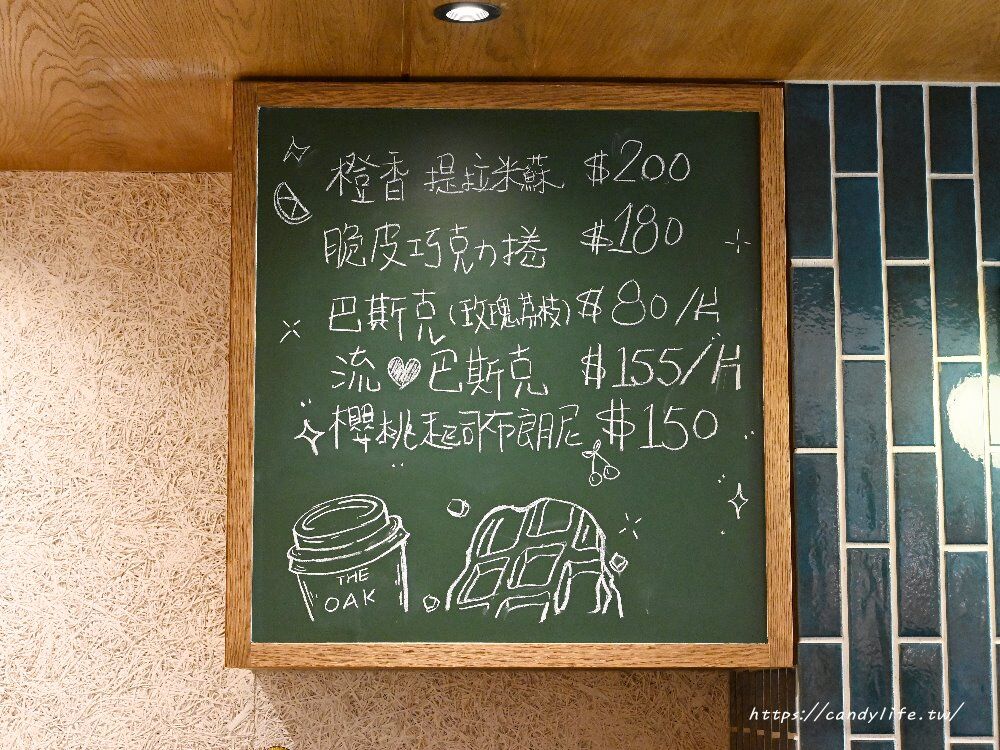 橙香 提拉米蘇 $200
脆皮巧克力捲 $180
巴斯克(玫瑰荔枝) $80/片
流♥巴斯克 $155/片
櫻桃起司布朗尼 $150
THE
OAK
https://candylife.tw/